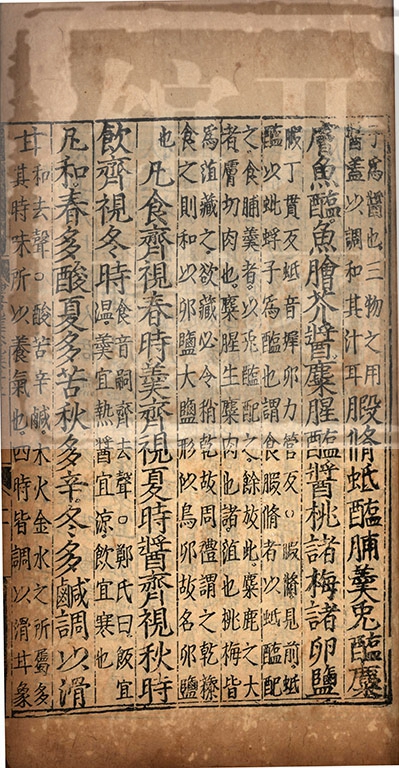 子為醬也三物之用
醬蓋以調和其汁耳
腶脩蚳醢脯羹兔醢麋
膚魚醢魚膾芥醬麋腥醢醬桃諸梅諸卵鹽
腶丁貫反蚳音墀卵力管反○腶脩見前蚳
醢以蚍蜉子為醢也謂食腶脩者以蚳醢配
之食脯羹者以兔醢配之餘放此麋鹿之大
者膚切肉也麋腥生麋肉也諸菹也桃梅皆
為菹藏之欲藏必令稍乾故周禮謂之乾䕩
食之則和以卵鹽大鹽形似鳥卵故名卵鹽
也
凡食齊視春時羹齊視夏時醬齊視秋時
飲齊視冬時
食音嗣齊去聲○鄭氏曰飯宜
温羹宜熱醬宜涼飲宜寒也
凡和春多酸夏多苦秋多辛冬多鹹調以滑
甘
和去聲○酸苦辛鹹木火金水之所屬多
其時味所以養氣也四時皆調以滑甘象